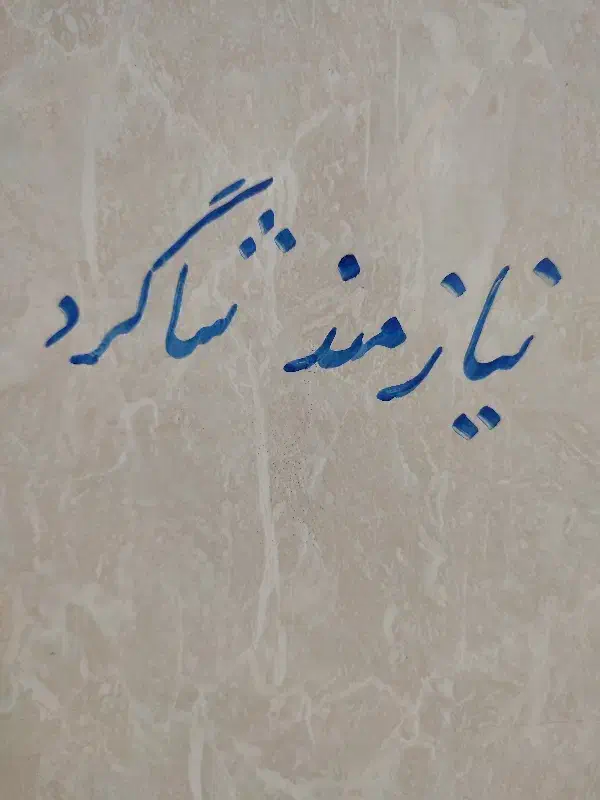 نیازمند شاگرد